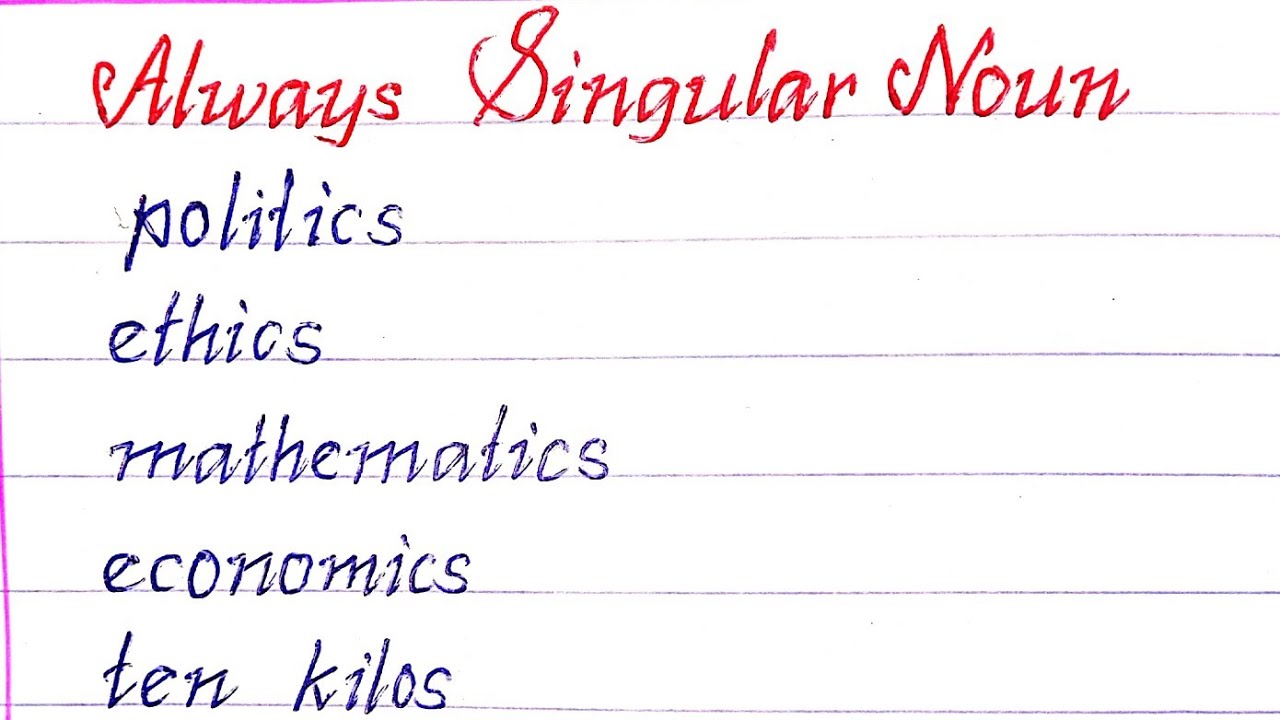 Always Singular Noun
politics
ethics
mathematics
economics
ten kilos